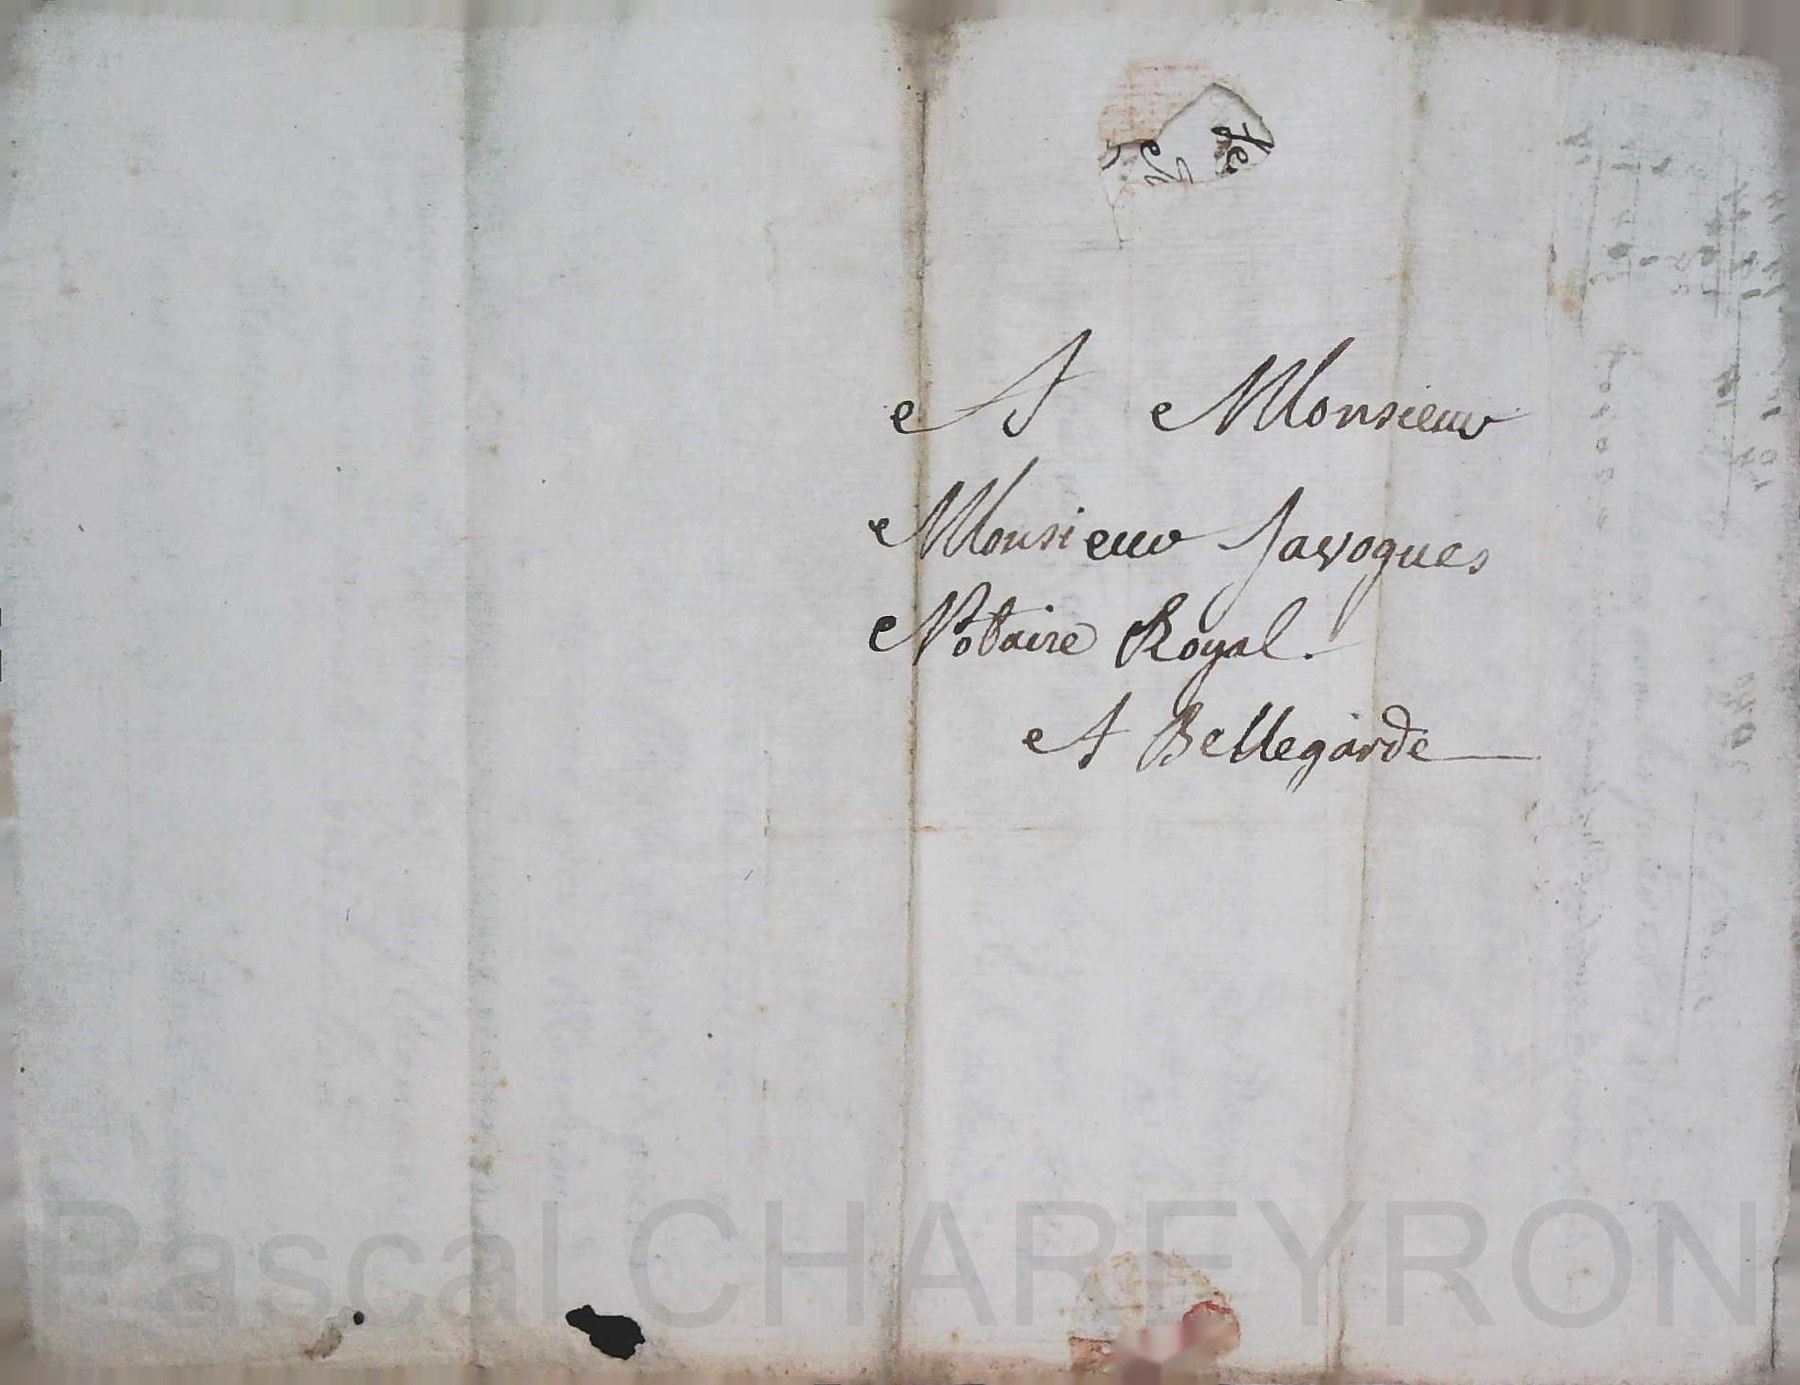 A Monsieur
Monsieur Javogues
Notaire Royal.
A Bellegarde
Pascal CHAREYRON